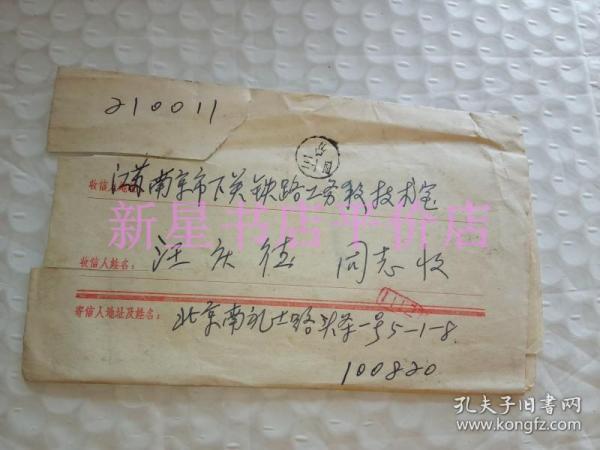 210011
收信人地址:
江苏南京市下关铁路工务段技术室
新星书店平价店
收信人姓名:
汪庆德 同志收
寄信人地址及姓名:
北京南礼士路头条一号5-1-8.
100820
孔夫子旧书网